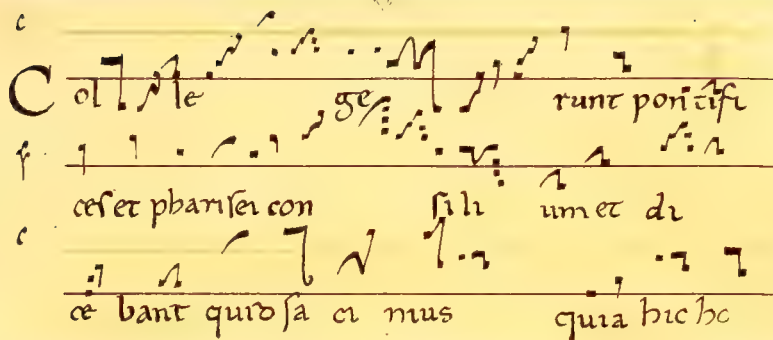 c
Col le ge runt pontifi
f
ceſ et phariſei con ſi li um et di
c
ce bant quid fa ci mus quia hic ho